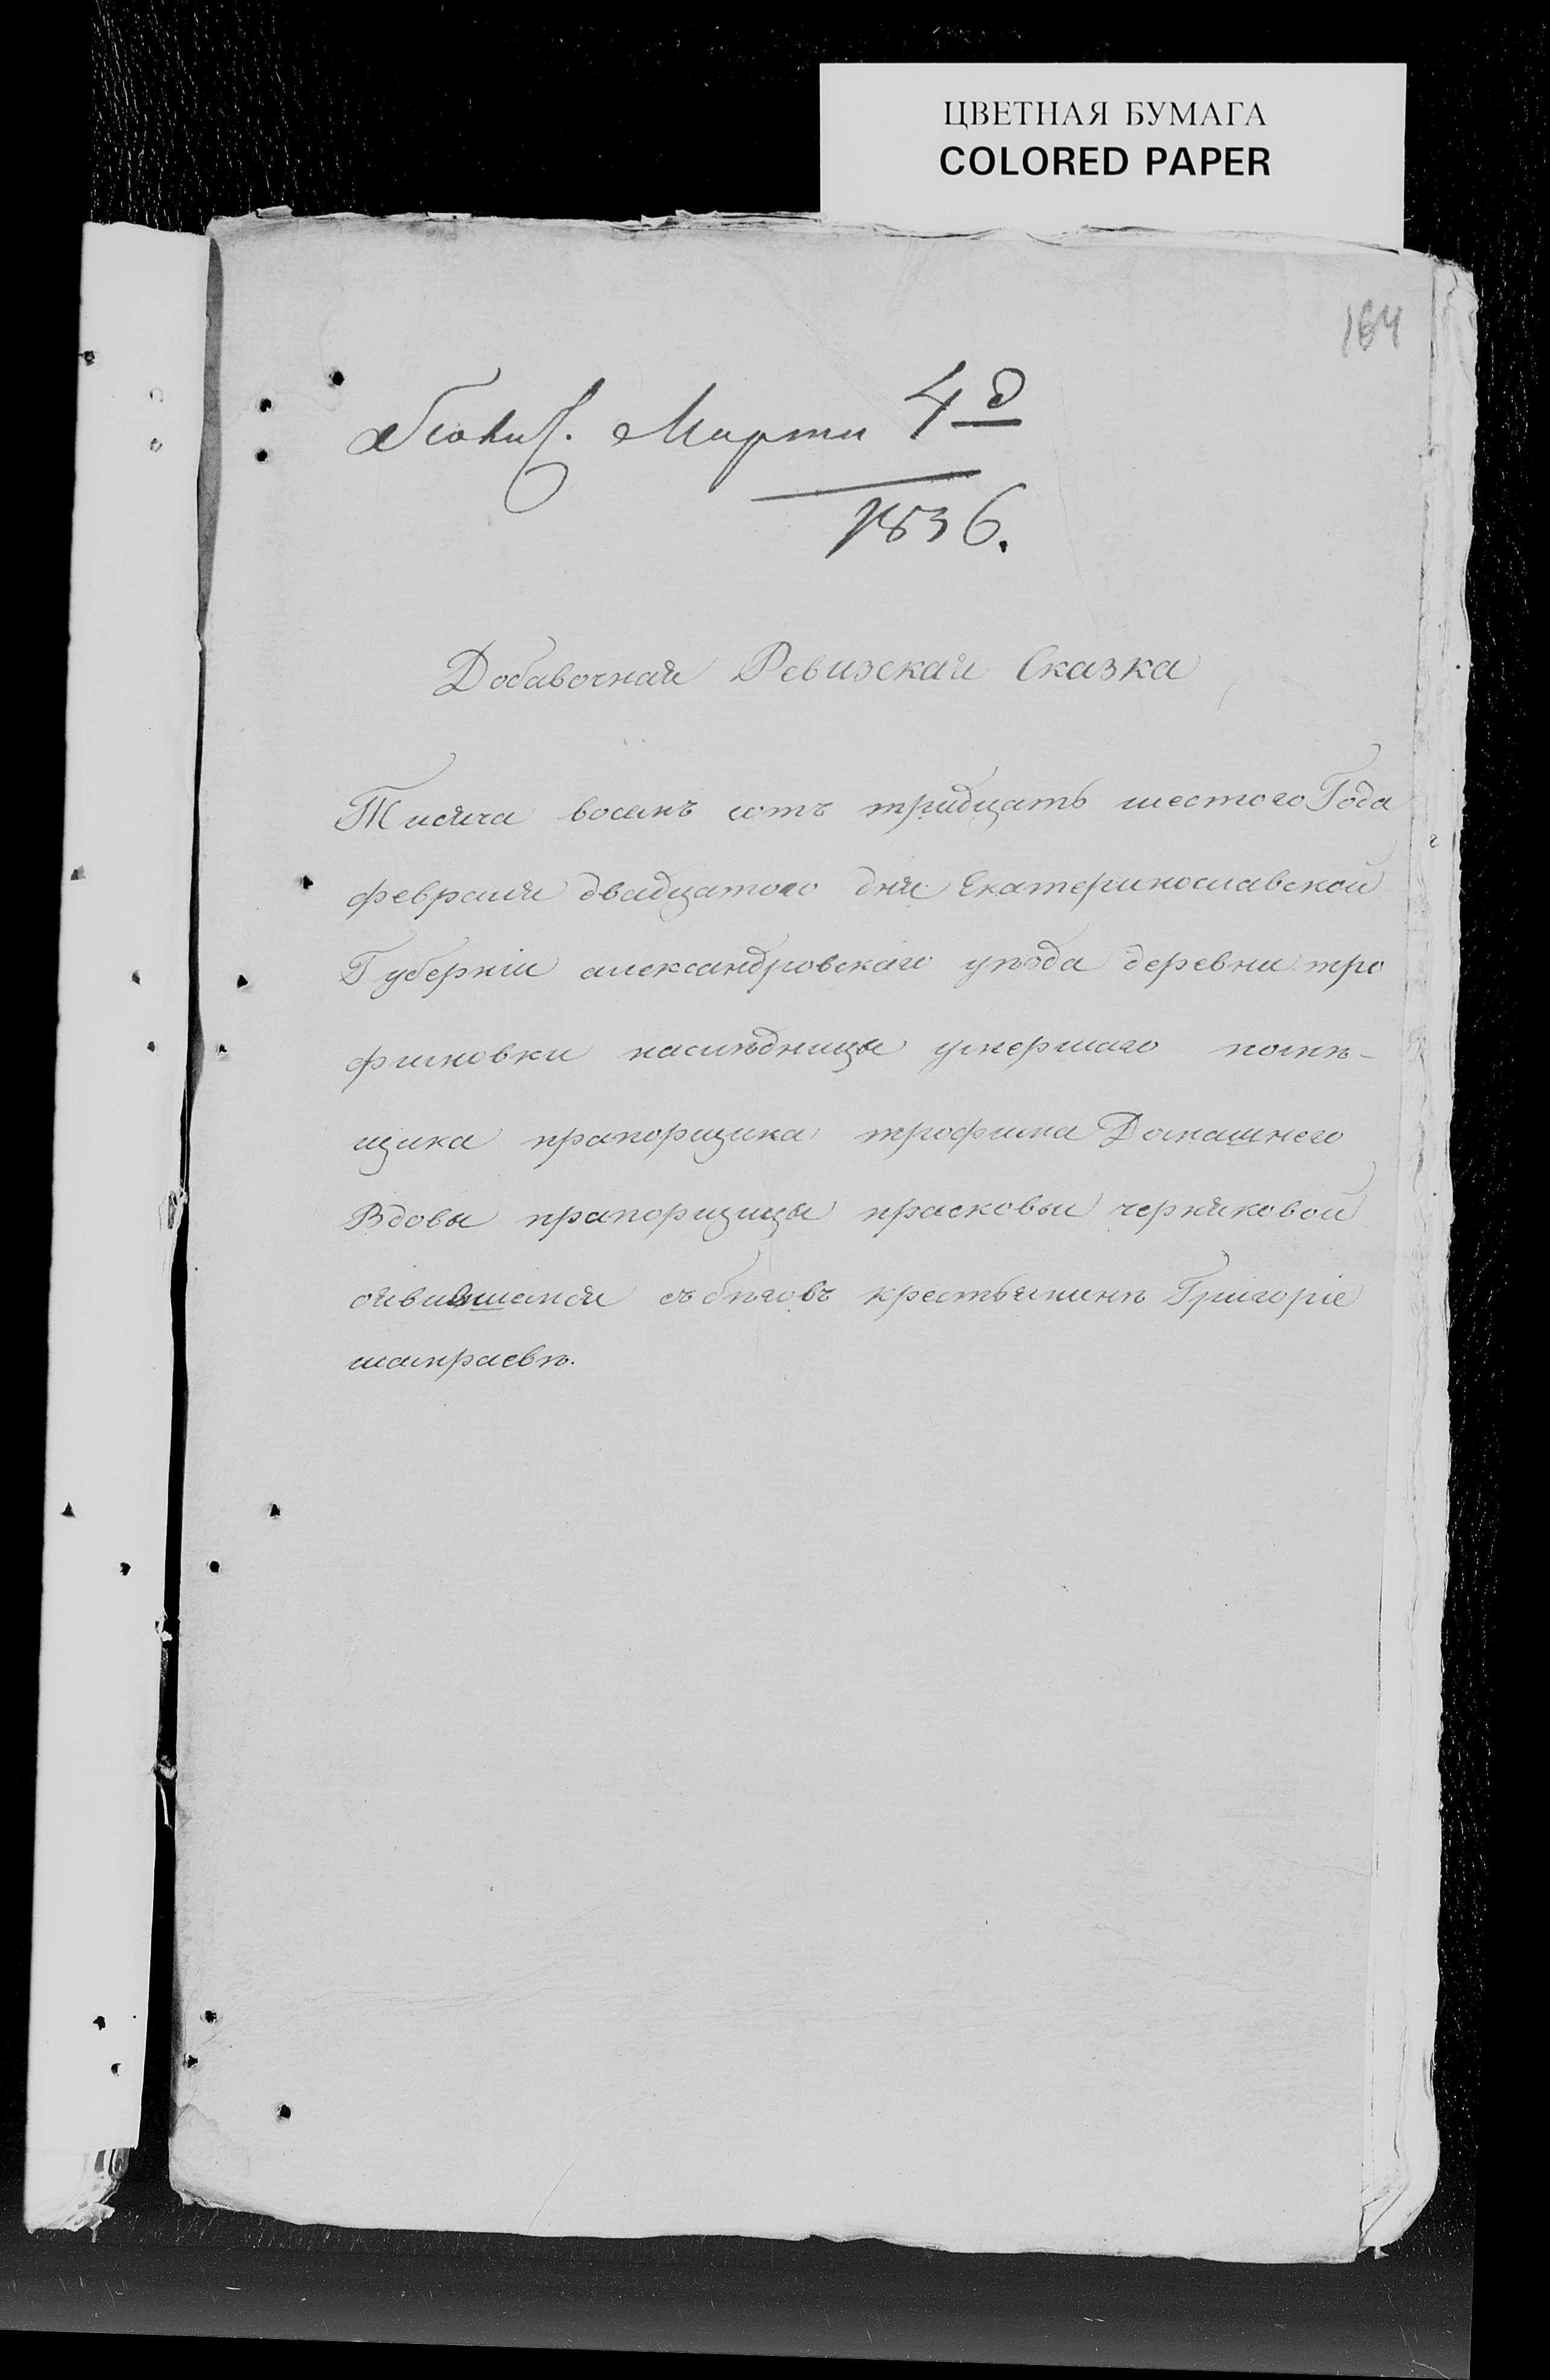 ЦВЕТНАЯ БУМАГА
COLORED PAPER
164
Марта 4 д
1836.
Добавочная Ревизская Сказка
Тисяча восемъ сотъ тридцать шестого Года
февраля двадцатого дня Екатеринославской
Губерніи александровскаго уѣзда деревни тро
фимовки наследницы умершаго помѣ-
щика прапорщика трофима Домашнего
Вдовы прапорщицы прасковьи черняковой
оявившемся съ бѣговъ крестьянинѣ Григорiе
шамраевѣ.